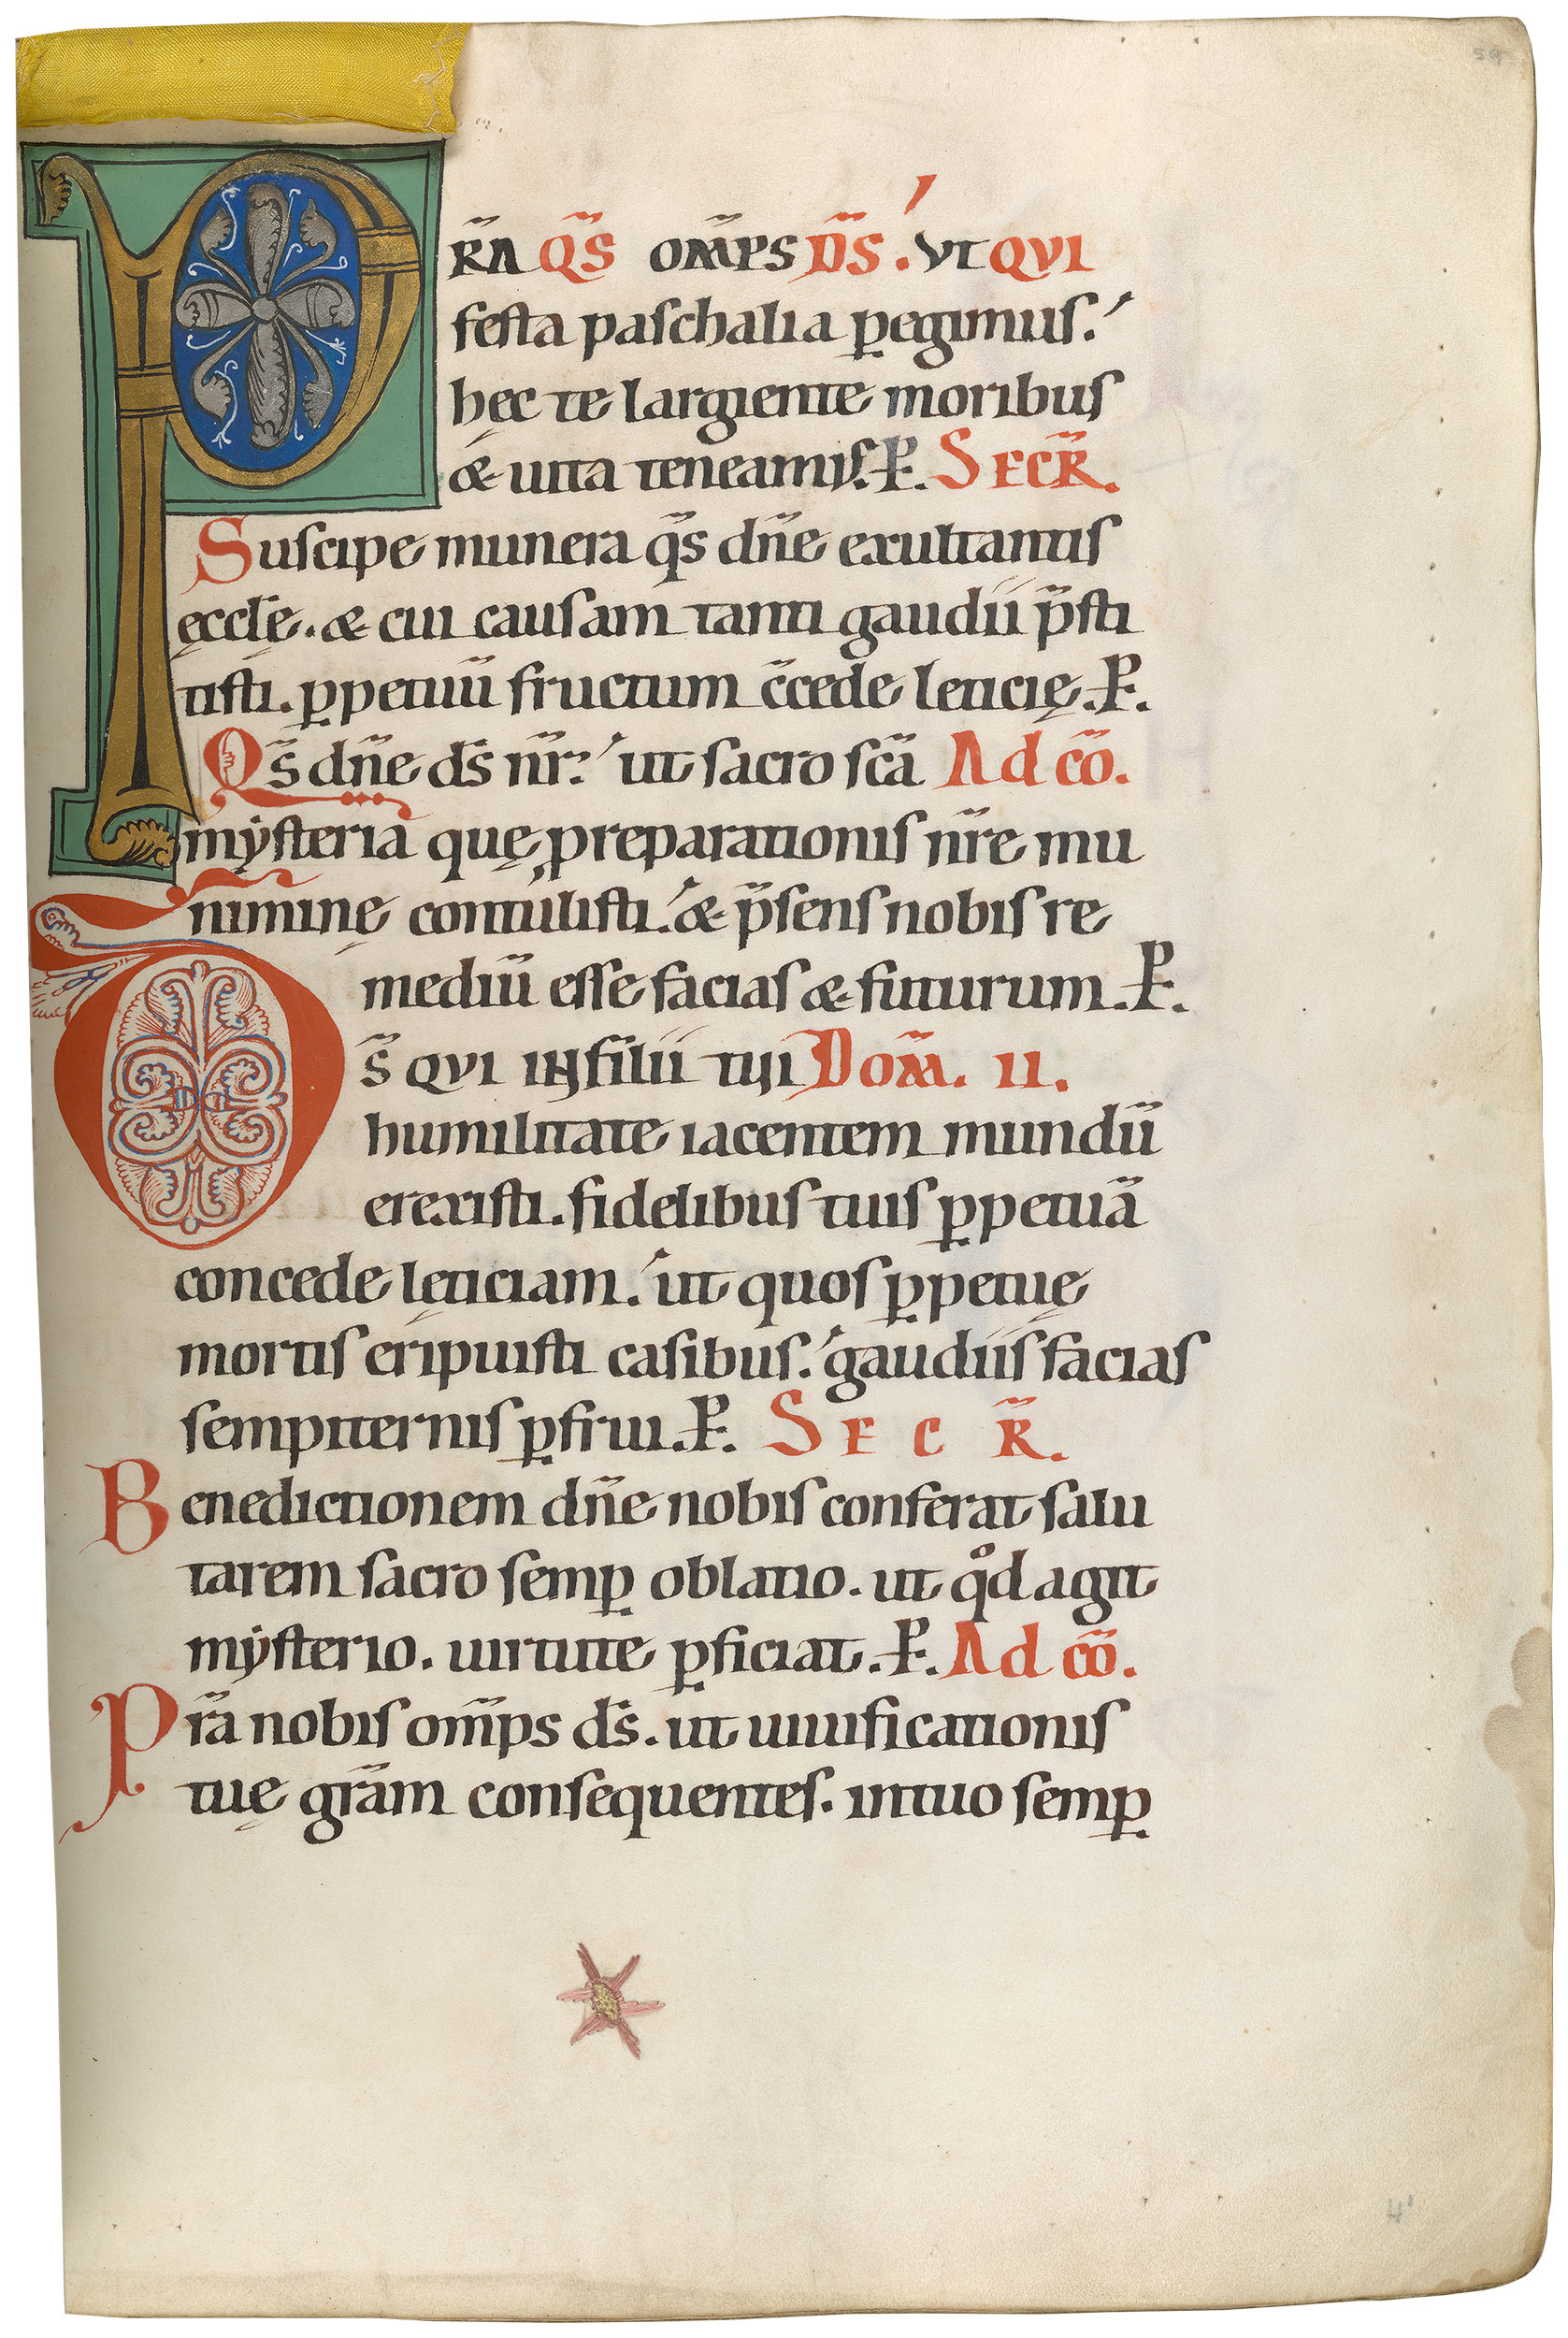 59
PR̄A Q̄S OM̄PS D̄S. VT QVI
festa paschalia ꝑegimus.
hęc te largiente moribus
& uita teneamus. P. SECR̄.
Suscipe munera q̄s dn̄e exultantis
ęccłe. & cui causam tanti gaudii p̄sti
tisti. ꝑpetuū fructum c̄cede leticię. P.
Q̄s dn̄e ds̄ nr̄. ut sacro sc̄a Ad cō.
mẏsteria quę preparationis nr̄e mu
nimine contulisti. & p̄sens nobis re
mediū esse facias & futurum. P.
DS̄ QVI IN filii tui DOM̄. II.
humilitate iacentem mundū
erexisti. fidelibus tuis ꝑpetuā
concede lęticiam. ut quos ꝑpetuę
mortis eripuisti casibus. gaudiis facias
sempiternis ꝑfrui. P. SECR̄.
Benedictionem dn̄e nobis conferat salu
tarem sacro semꝑ oblatio. ut qͦd agit
mẏsterio. uirtute ꝑficiat. P. Ad cō.
Pr̄a nobis om̄ps ds̄. ut uiuificationis
tuę gr̄am consequentes. in tuo semꝑ